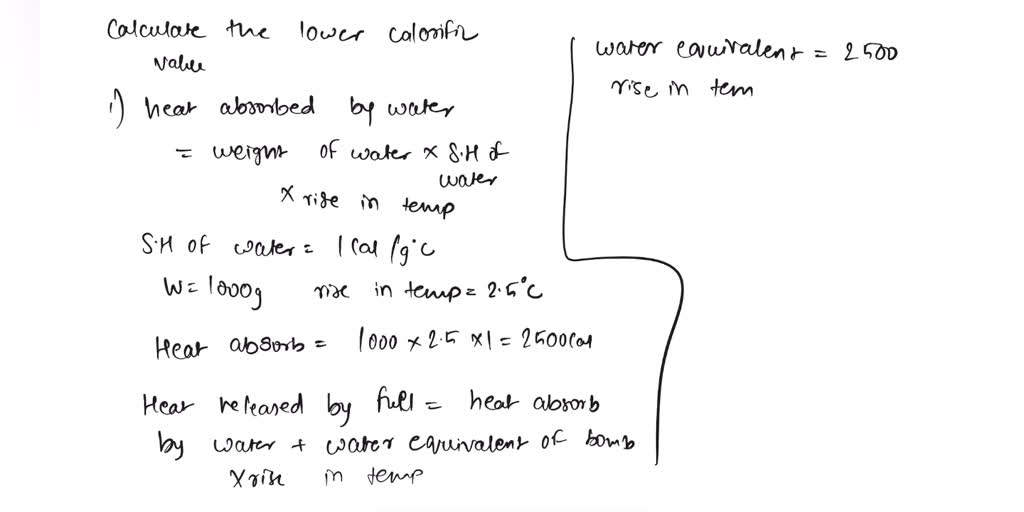 Calculate the lower calorific
value
i) heat absorbed by water
= weight of water x S.H of
water
x rise in temp
S.H of water = 1 Cal /g°C
W = 1000g rise in temp = 2.5°C
Heat absorb = 1000 x 2.5 x 1 = 2500 Cal
Heat released by fuel = heat absorb
by water + water equivalent of bomb
x rise in temp
water equivalent = 2500
rise in tem